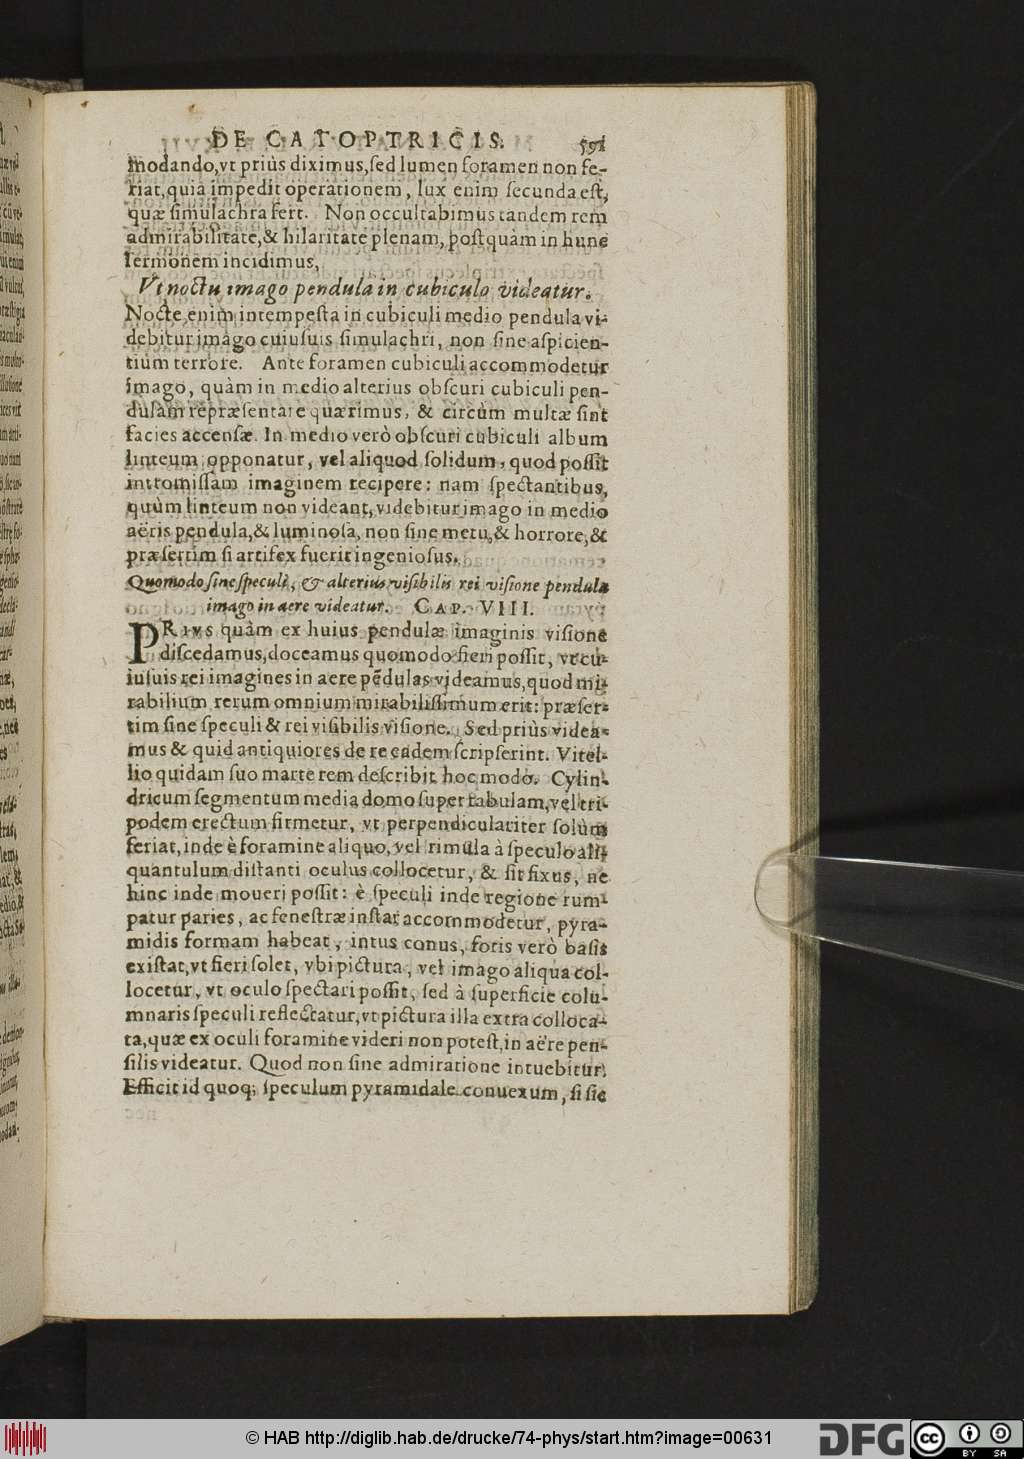 DE CATOPTRICIS. 591
modando, vt priùs diximus, sed lumen foramen non fe-
riat, quia impedit operationem, lux enim secunda est,
quæ simulachra fert. Non occultabimus tandem rem
admirabilitate, & hilaritate plenam, postquàm in hunc
sermonem incidimus,
Vt noctu imago pendula in cubiculo videatur.
Nocte enim intempesta in cubiculi medio pendula vi-
debitur imago cuiusuis simulachri, non sine aspicien-
tium terrore. Ante foramen cubiculi accommodetur
imago, quàm in medio alterius obscuri cubiculi pen-
dulam repræsentare quærimus, & circùm multæ sint
facies accensæ. In medio verò obscuri cubiculi album
linteum opponatur, vel aliquod solidum, quod possit
intromissam imaginem recipere: nam spectantibus,
quùm linteum non videant, videbitur imago in medio
aëris pendula, & luminosa, non sine metu, & horrore, &
præsertim si artifex fuerit ingeniosus.
Quomodo sine speculi, & alterius visibilis rei visione pendula
imago in aere videatur. CAP. VIII.
PRIVS quàm ex huius pendulæ imaginis visione
discedamus, doceamus quomodo fieri possit, vt cu-
iusuis rei imagines in aere pẽdulas videamus, quod mi-
rabilium rerum omnium mirabilissimum erit: præser-
tim sine speculi & rei visibilis visione. Sed priùs videa-
mus & quid antiquiores de re eadem scripserint. Vitel-
lio quidam suo marte rem describit hoc modo. Cylin-
dricum segmentum media domo super tabulam, vel tri-
podem erectum firmetur, vt perpendiculariter solùm
feriat, inde è foramine aliquo, vel rimula à speculo ali-
quantulum distanti oculus collocetur, & sit fixus, ne
hinc inde moueri possit: è speculi inde regione rum-
patur paries, ac fenestræ instar accommodetur, pyra-
midis formam habeat, intus conus, foris verò basis
existat, vt fieri solet, vbi pictura, vel imago aliqua col-
locetur, vt oculo spectari possit, sed à superficie colu-
mnaris speculi reflectatur, vt pictura illa extra colloca-
ta, quæ ex oculi foramine videri non potest, in aëre pen-
silis videatur. Quod non sine admiratione intuebitur.
Efficit id quoq; speculum pyramidale conuexum, si sic
© HAB http://diglib.hab.de/drucke/74-phys/start.htm?image=00631
DFG
cc BY SA